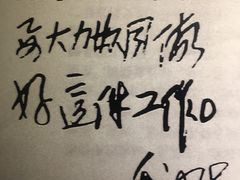 要大力协同做
好這件工作